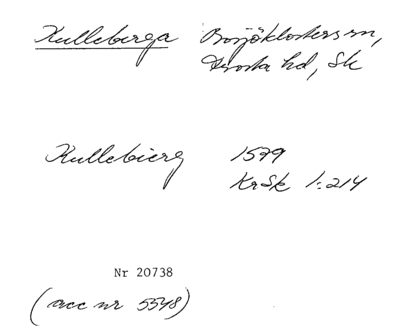 Kulleberga Bosjöklosters sn,
Frosta hd, Sk
Kullebierg 1579
KrSk 1:214
Nr 20738
(acc nr 5548)